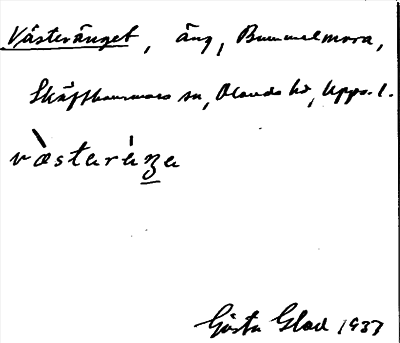 Västeränget, äng, Bummelmora,
Skäfthammars sn, Olands hd, Upps. l.
västaräŋa
Gösta Glad 1937